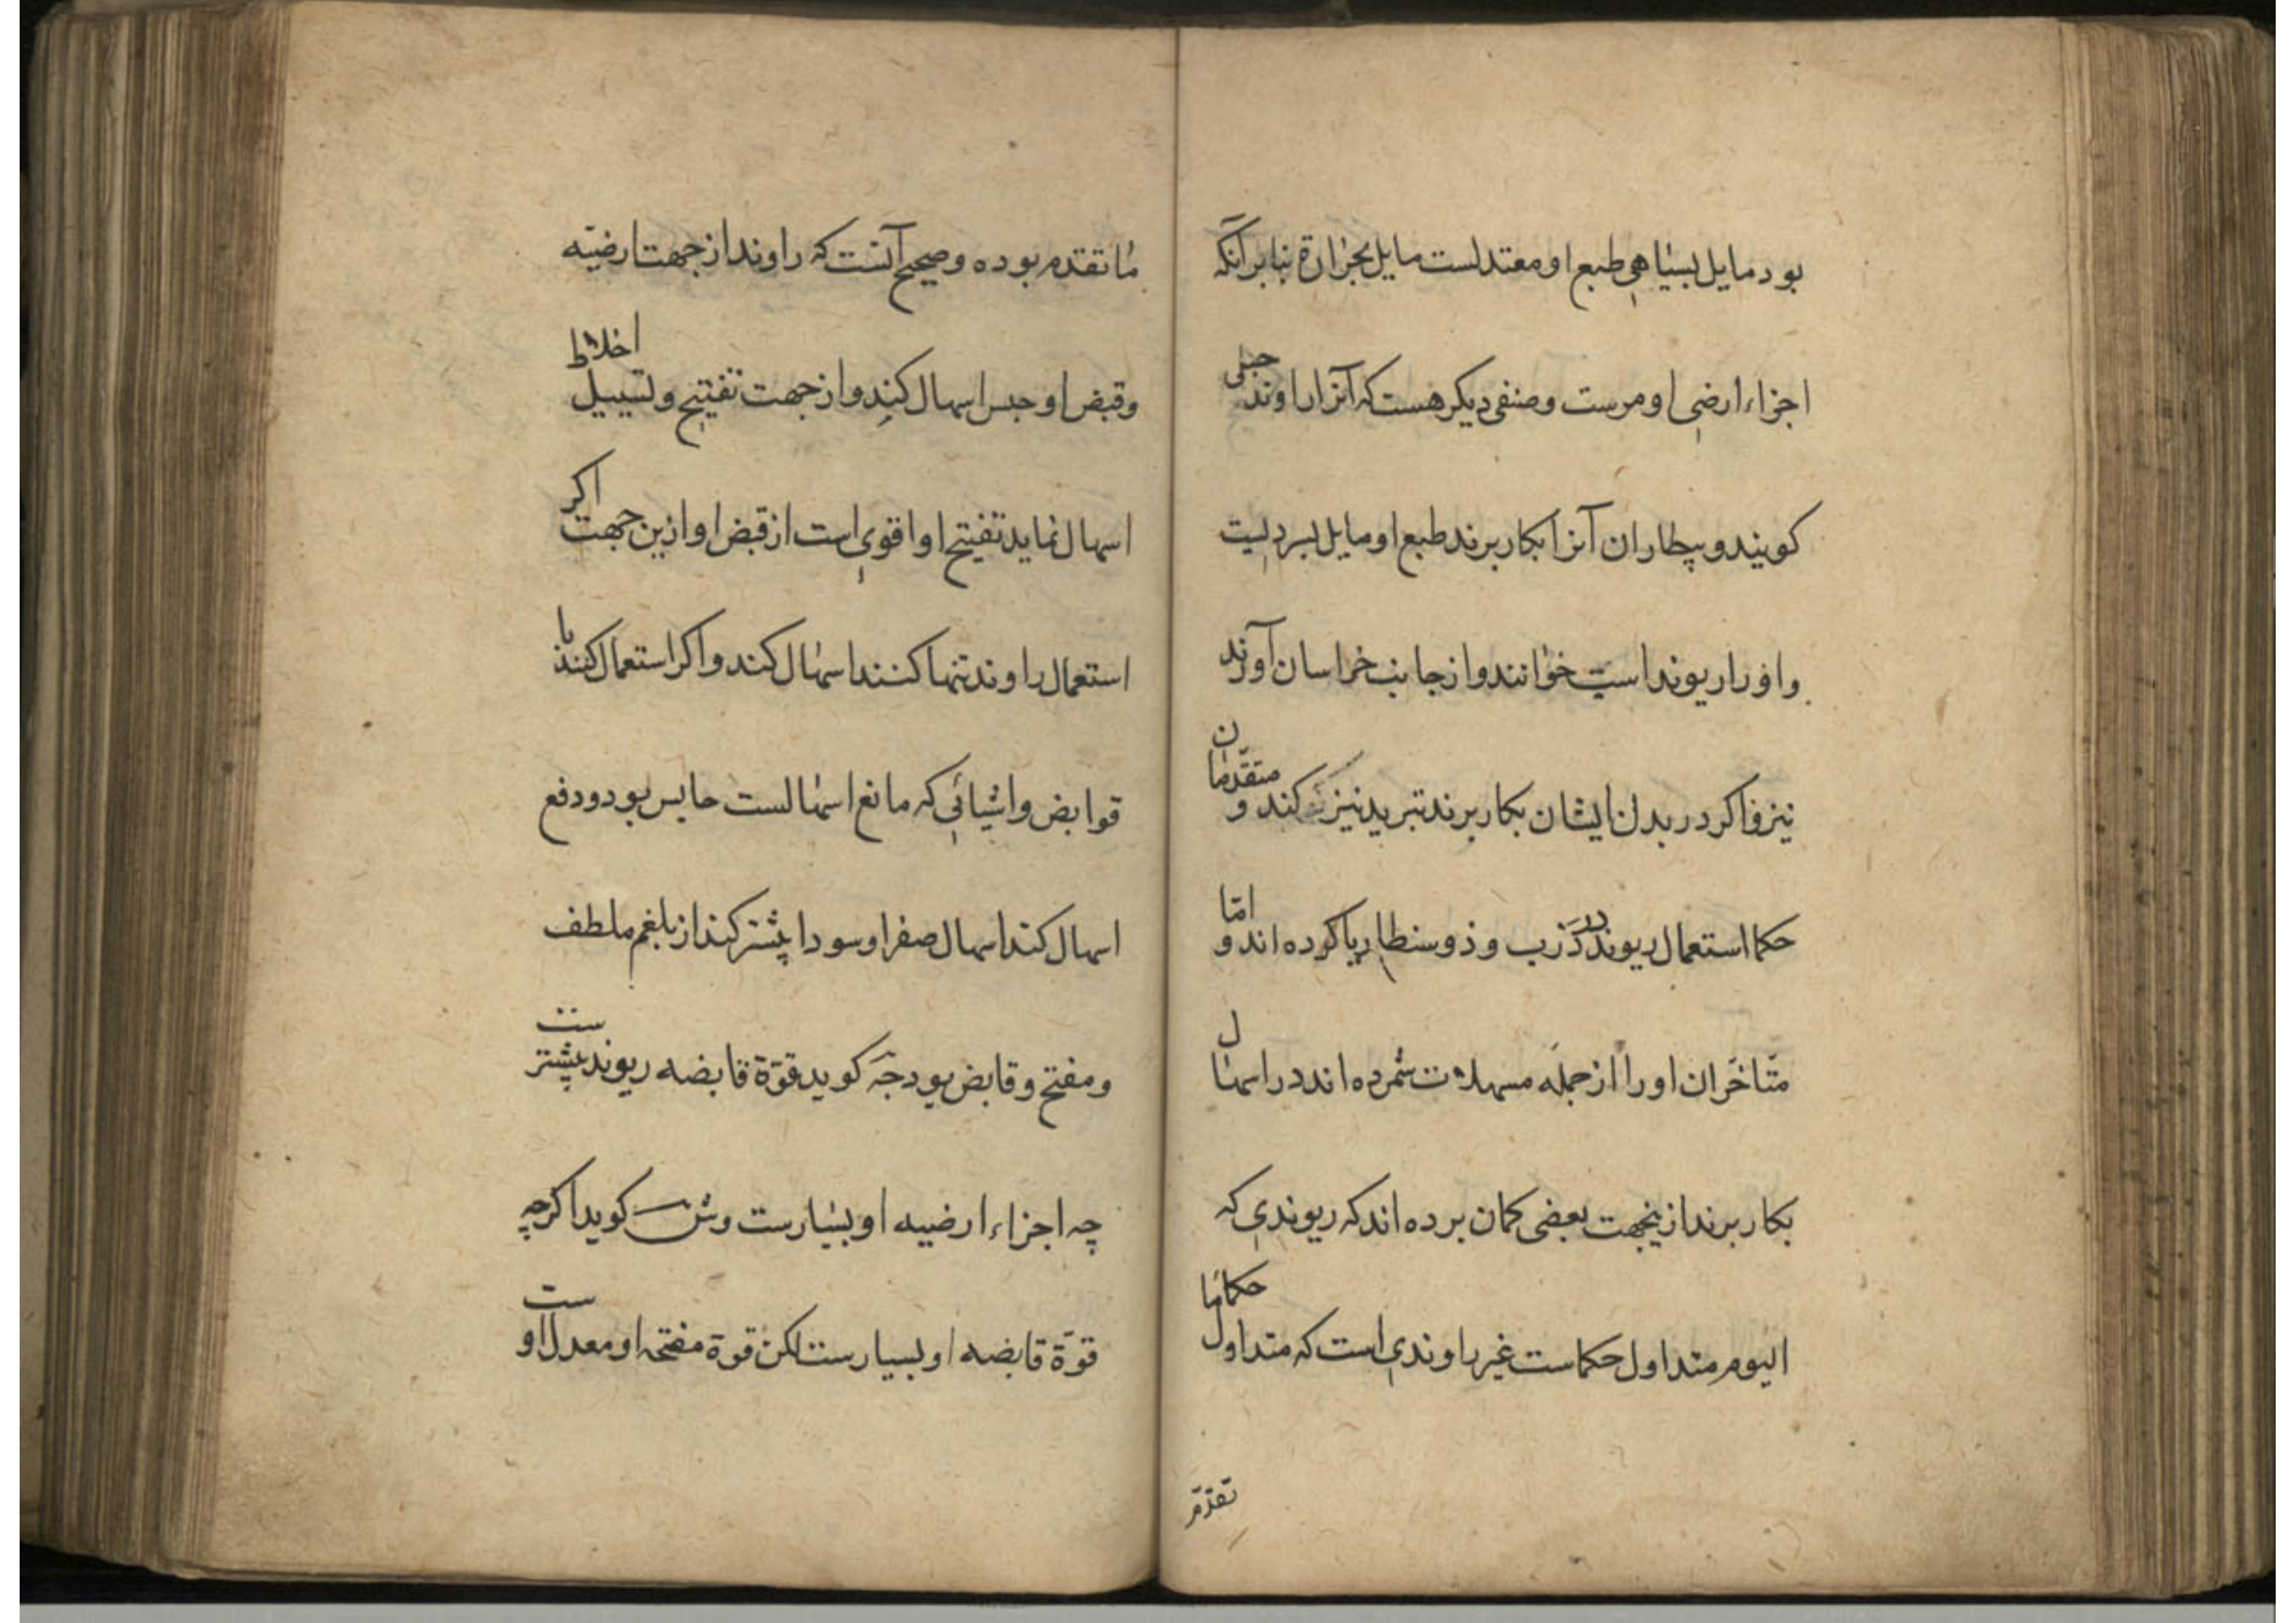 بود مایل بسیاهی طبع او معتدلست مایل بحرارة بنابر آنکه
اجزاء ارضی او مرست و صنفی دیکر هست که آنرا راوند جبلی
کویند و بیطاران آنرا بکار برند طبع او مایل ببردلیت
و او را ریوند اسپ خوانند و از جانب خراسان آورند
نیز و اکر در بدن ایشان بکار برند تبرید نیز کند و متقدمان
حکما استعمال ریوند در ذرب و ذوسنطاریا کرده اند و امّا
متاخّران او را از جمله مسهلات شمرده اند در اسهال
بکار برند ازینجهت بعضی کمان برده اند که ریوندی که
الیوم متداول حکماست غیر راوندی است که متداول حکما ما
تقدّم
ما تقدم بوده و صحیح آنست که راوند از جهت ارضیّه
و قبض او حبس اسهال کند و از جهت تفتیح و تسییل اخلاط
اسهال نماید تفتیح او اقوی است از قبض او ازین جهت اکر
استعمال راوند تنها کنند اسهال کند و اکر استعمال کنند با
قوابض و اشیائی که مانع اسهالست حابس بود و دفع
اسهال کند اسهال صفرا و سودا بیشتر کند از بلغم ملطف
و مفتح و قابض بود جه کوید قوّة قابضه ریوند بیشترست
چه اجزاء ارضییه او بسیارست و ش کوید اکرچه
قوّة قابضه او بسیارست لکن قوة مفتحه او معدل اوست